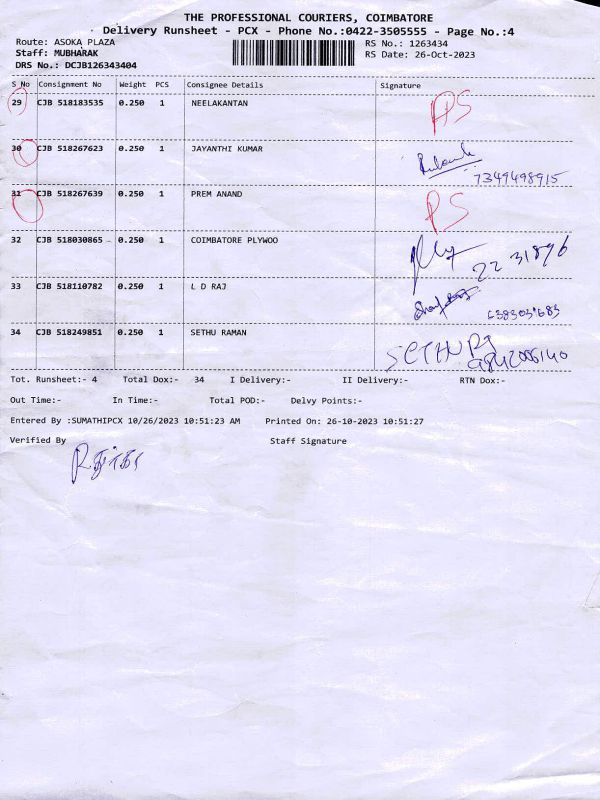 THE PROFESSIONAL COURIERS, COIMBATORE
Delivery Runsheet - PCX - Phone No.:0422-3505555 - Page No.:4
Route: ASOKA PLAZA
Staff: MUBHARAK
DRS No.: DCJB126343404
RS No.: 1263434
RS Date: 26-Oct-2023
S No Consignment No Weight PCS Consignee Details Signature
29 CJB 518183535 0.250 1 NEELAKANTAN PS
30 CJB 518267623 0.250 1 JAYANTHI KUMAR
7349498915
31 CJB 518267639 0.250 1 PREM ANAND PS
32 CJB 518030865 0.250 1 COIMBATORE PLYWOO
22 31896
33 CJB 518110782 0.250 1 L D RAJ
34 CJB 518249851 0.250 1 SETHU RAMAN
SETHU
Tot. Runsheet:- 4 Total Dox:- 34 I Delivery:- II Delivery:- RTN Dox:-
Out Time:- In Time:- Total POD:- Delvy Points:-
Entered By :SUMATHIPCX 10/26/2023 10:51:23 AM Printed On: 26-10-2023 10:51:27
Verified By Staff Signature